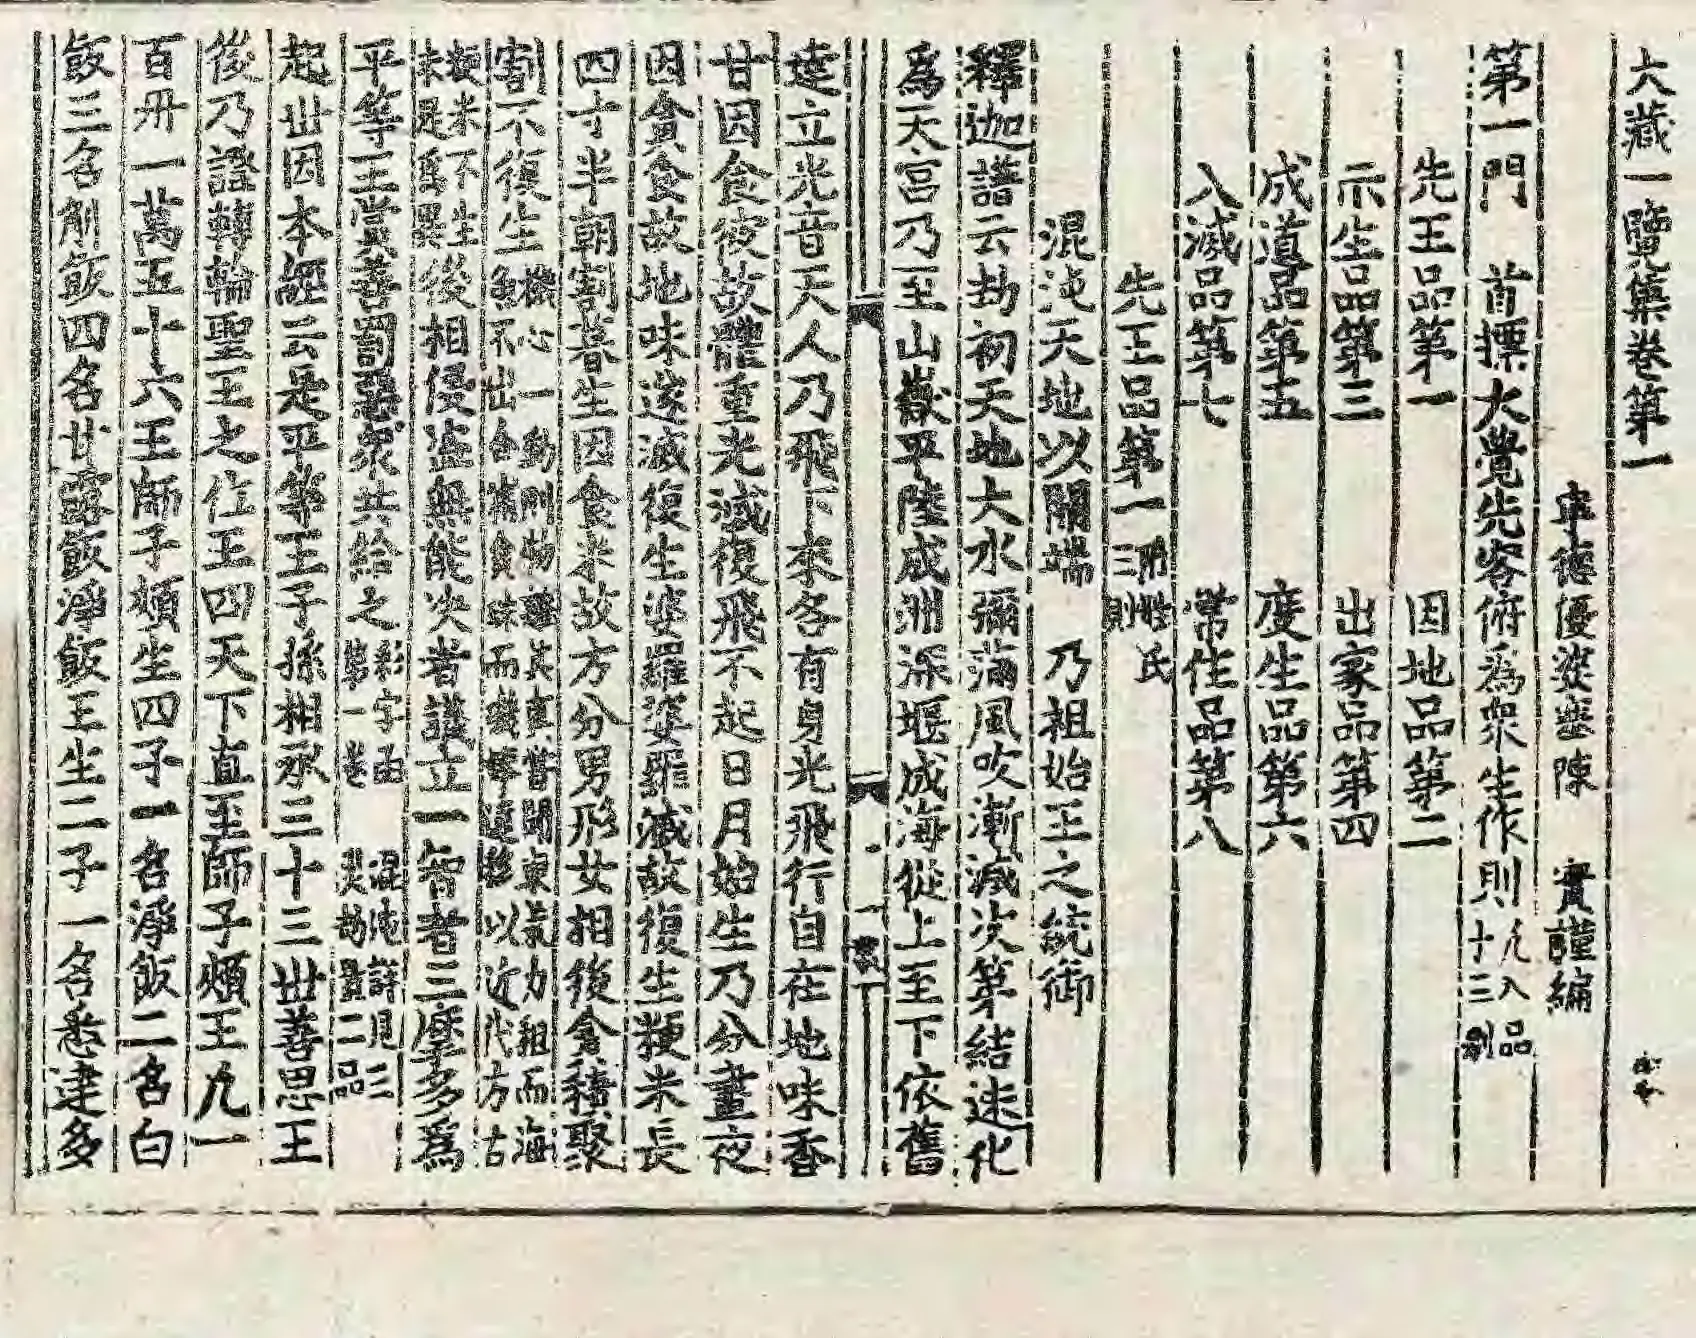 大藏一覽集卷第一
寧德優婆塞陳 實謹編
第一門 首摽大覺先容俯為眾生作則凡八品十三則
先王品第一 因地品第二
示生品第三 出家品第四
成道品第五 度生品第六
入滅品第七 常住品第八
先王品第一三則 附姓氏
混沌天地以開端 乃祖始王之統御
釋迦譜云劫初天地大水彌滿風吹漸減次第結速化
爲天宮乃至山嶽平陸成洲深堰成海從上至下依舊
建立光音天人乃飛下來各有身光飛行自在地味香
甘因食彼故體重光滅復飛不起日月始生乃分晝夜
因貪食故地味遂滅復生婆羅婆羅滅故復生粳米長
四寸半朝割暮生因食米故方分男形女相後貪積聚
割不復生機心一動則物離其真嘗聞東氣力祖而海魚不出含情食味而識等遷移以近代方古
粳米不生未是爲異後相侵盜無能決者議立一智者三摩多爲
平等王賞善罰惡衆共給之彩字函第一卷 混沌詳見三災劫量二品
起世因本經云是平等王子孫相承三十三世善思王
後乃證轉輪聖王之位王四天下直至師子頰王凡一
百卅一萬五十六王師子頰生四子一名淨飯二名白
飯三名斛飯四名甘露飯淨飯王生二子一名悉達多